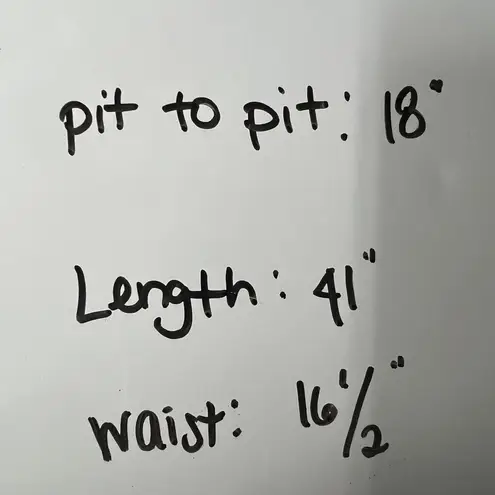 pit to pit: 18"
Length: 41"
waist: 16 1/2"